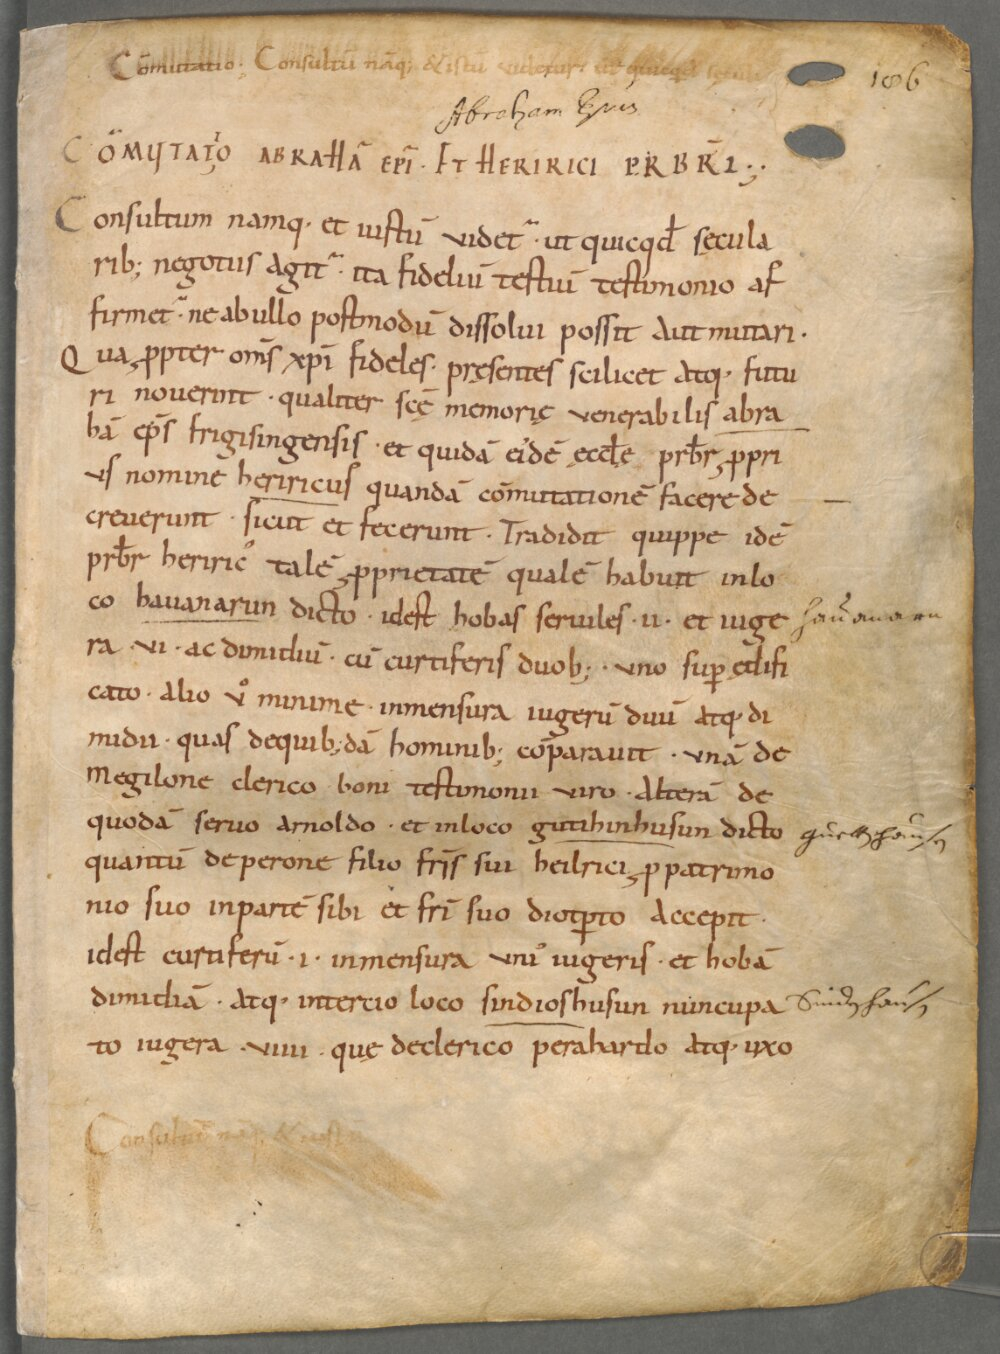 Cōmutatio · Consultū nāq; & istū videtur ut quicqd
186
Abraham Epūs
CŌMUTATIO ABRAHĀ EPĪ · ET HERIRICI PRBRĪ
Consultum namq · et iustū videt ut quicqđ secula
rib; negotiis agit · ita fideliū testiū testimonio af
firmet · ne ab ullo postmodū dissolvi possit aut mutari ·
Qua ꝓpter om̄s xp̄i fideles · pręsentes scilicet atq · futu
ri noverint · qualiter scę̄ memorię venerabilis abra
hā ep̄s frigisingensis · et quidā eidē ęccłe prb̄r ꝓpri
us nomine heriricus quandā cōmutationē facere de
creverunt · sicut et fecerunt · Tradidit quippe idē
prb̄r heriric᾿ talē ꝓprietatē qualē habuit in lo
co havanarun dicto · idest hobas serviles · ii · et iuge
ra · vi · ac dimidiū · cū curtiferis duob; · uno sup̱ ędifi
cato · alio v̊ minime · in mensura iugerū duū atq · di
midii · quas de quib;dā hominib; cōparavit · unā de
Megilone clerico boni testimonii viro · Alterā de
quodā servo arnoldo · et in loco gutihinhusun dicto
quantū de perone filio fr̄is sui heilrici ꝓ patrimo
nio suo in partē sibi et fr̄i suo diotp̱to accepit ·
idest curtiferū · i · in mensura uni᾿ iugeris · et hobā
dimidiā · atq · in tercio loco sindioshusun nuncupa
to iugera · viiii · quę de clerico perahardo atq · uxo
havanarn
Consultū nāq; & iustū